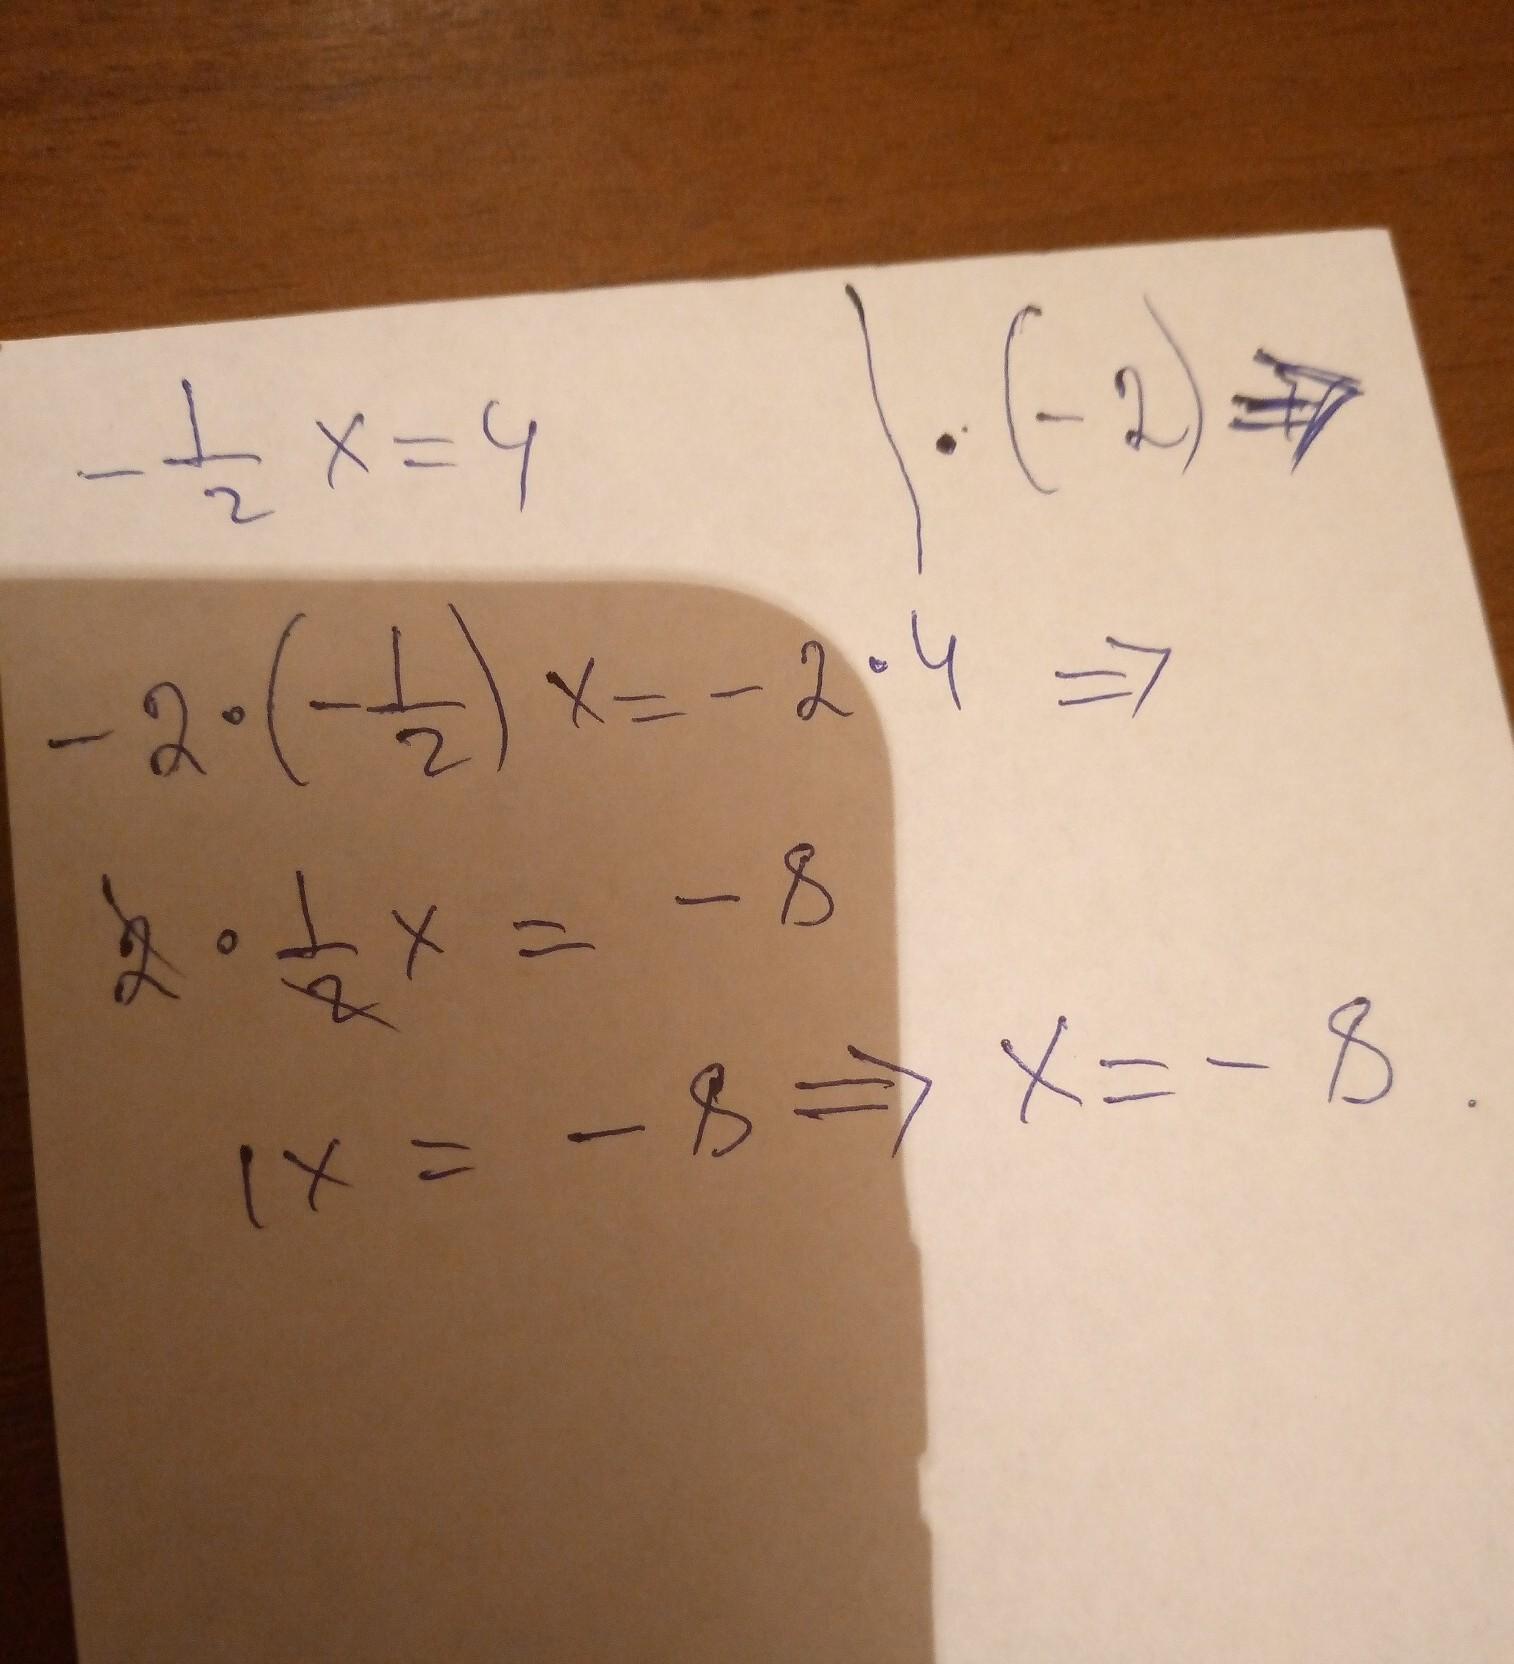 -1/2 x = 4 | · (-2) ⇒
-2 · (-1/2) x = -2 · 4 ⇒
2 · 1/2 x = -8
1x = -8 ⇒ x = -8.